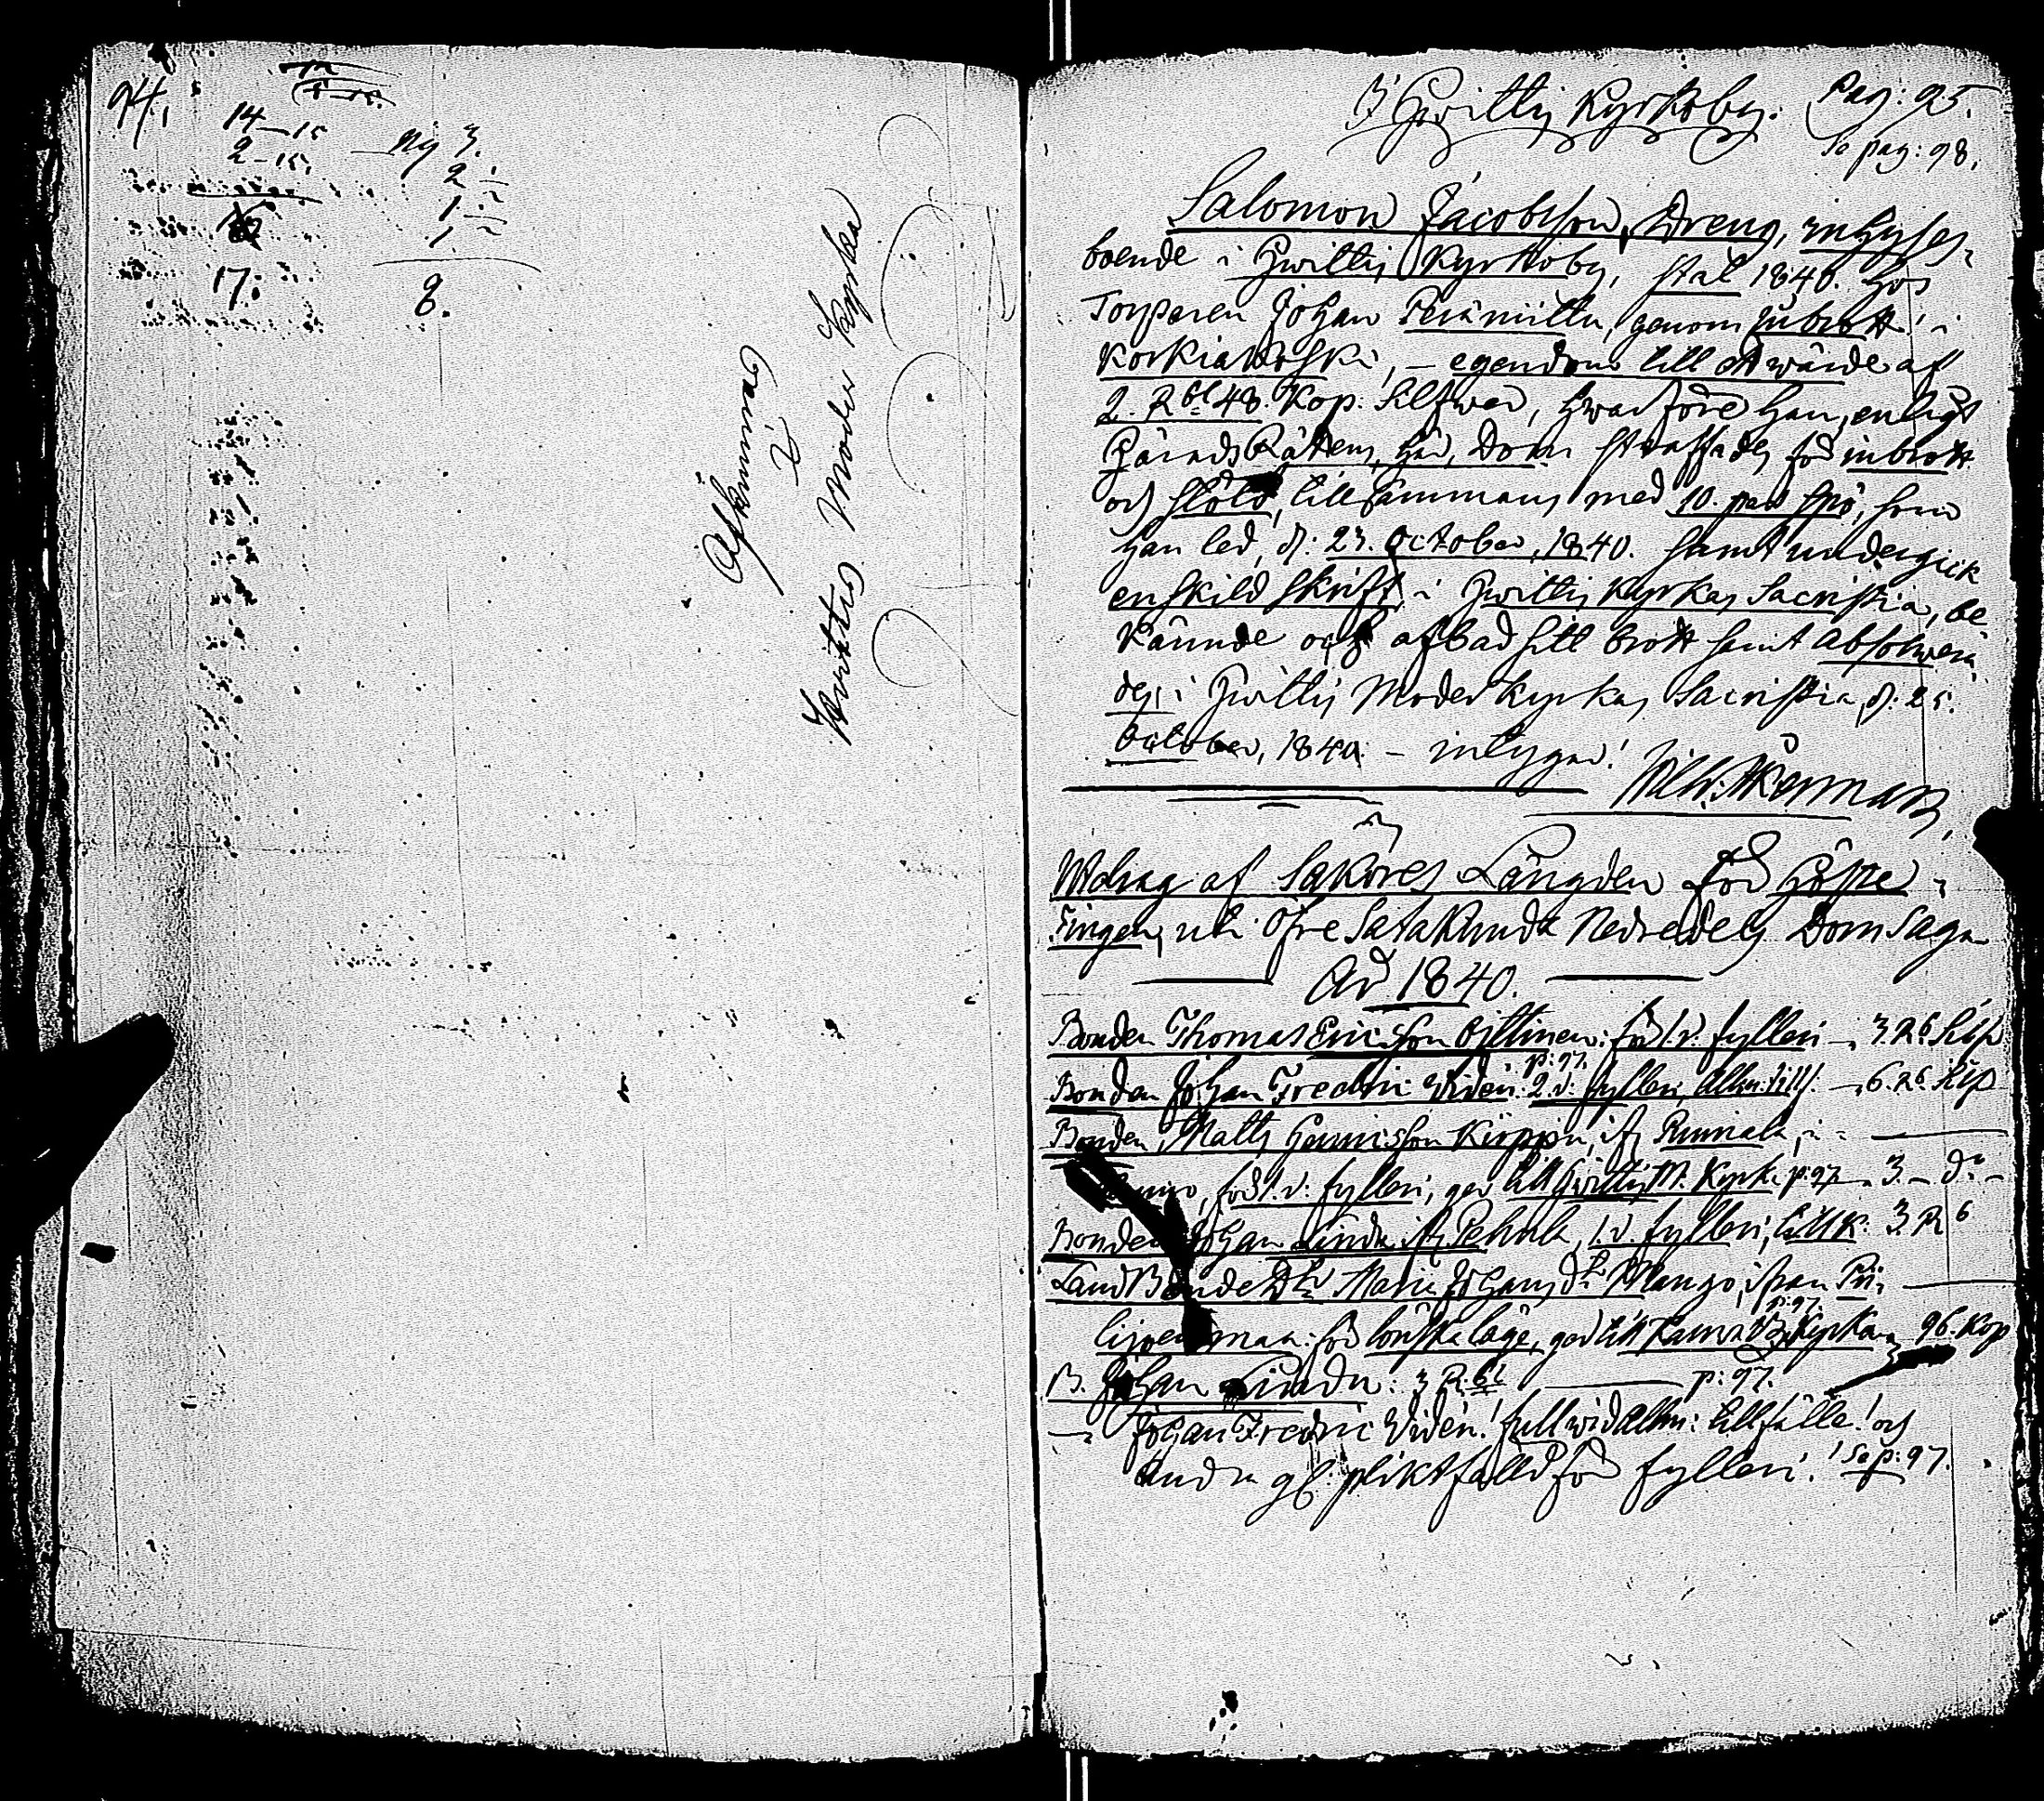 94.
14-15
2-15.
17.
Ny 3.
2
1
1.
8.
Afkunnas
i
Hvittis Moder Kyrka
I Hvittis Kyrkoby. Pag: 95.
Se pag: 98.
Salomon Jacobsson, Dreng, inhyses,
boende i Hvittis Kyrkoby, stal 1840. hos
Torparen Johan Perämittu, genom inbrott i
Korkiakoski, – egendom till ett wärde af
2. Rbl 48. Kop: Silfwer, hwarföre han, enligt
HäradsRättens, Dom straffades för inbrott
och stöld, tillsammans med 10. par spö, som
han led, d: 23. October, 1840. samt undergick
enskild skrift i Hvittis Kyrkas Sacristia, be-
kännde och afbad sitt brott samt absolvera-
des i Hvittis Moderkyrkas Sacristia, d: 25.
October, 1840. – intygar!
Wilh: Åkerman
Utdrag af Saköres Längden för Höste
Tingen, uti Öfre Satakunda Nedredels Domsaga
År 1840.
Bonden Thomas Ericsson Ojttinen: för 1. v. fylleri – 3. Rb. Silf
p: 97.
Bonden Johan Fredric Widén: 2. v: fylleri, allm: tillf. – 6. Rb. Silf
Bonden, Matts Henricsson Kirppu, ifr
för 1. v: fylleri, ger till Hvittis M. Kyrka p: 97 – 3. – d:o –
Bonden Johan Lindu ifr Pehula, 1. v. fylleri, till K: 3. Rb
LandBonde Dtr Maria Johans dr Mango, ifrån
p: 97.
för lönskaläge, ger till Kauvatsa Kyrka 96. Kop
B. Johan Lindu: 3 Rbl p: 97.
– Johan Fredric Widén! full wid allm: tillfälle! och
andra g: pliktfälld för fylleri! Se p: 97.